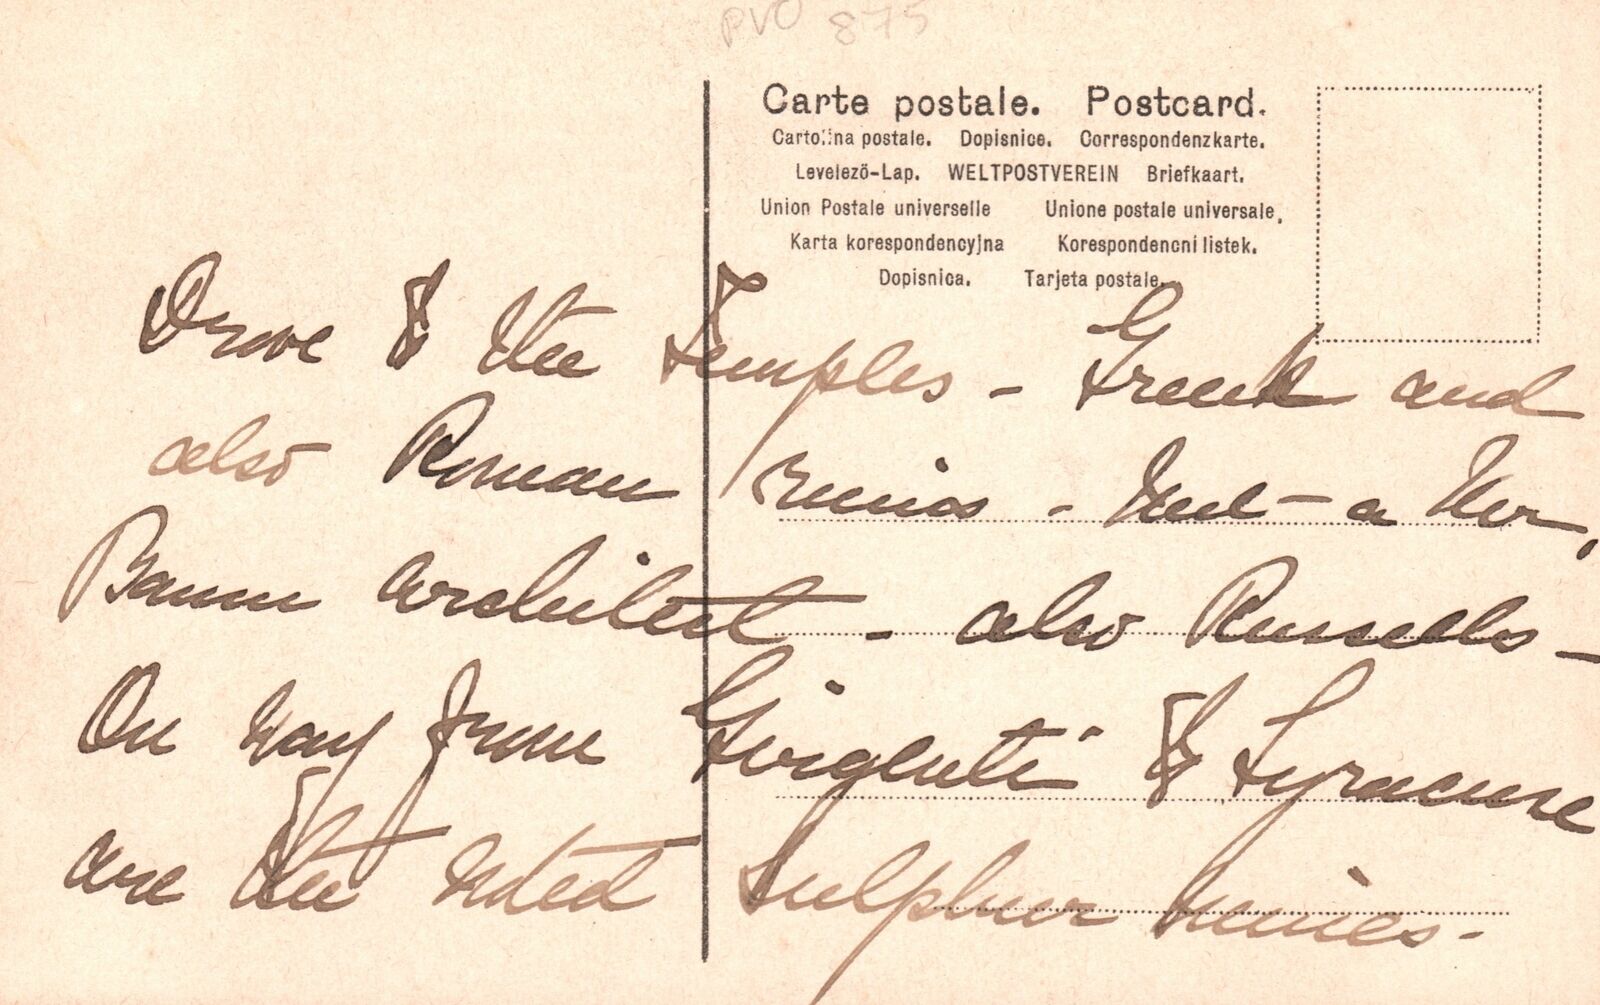 PVO 875
Carte postale. Postcard.
Cartolina postale. Dopisnice. Correspondenzkarte.
Levelező-Lap. WELTPOSTVEREIN Briefkaart.
Union Postale universelle Unione postale universale.
Karta korespondencyjna Korespondencní listek.
Dopisnica. Tarjeta postale.
Drove to the Temples - Greek and
also Roman ruins - Met - a Mr.
Baum architect - also Russells -
On way from Girgenti to Syracuse
are the noted Sulphur mines -